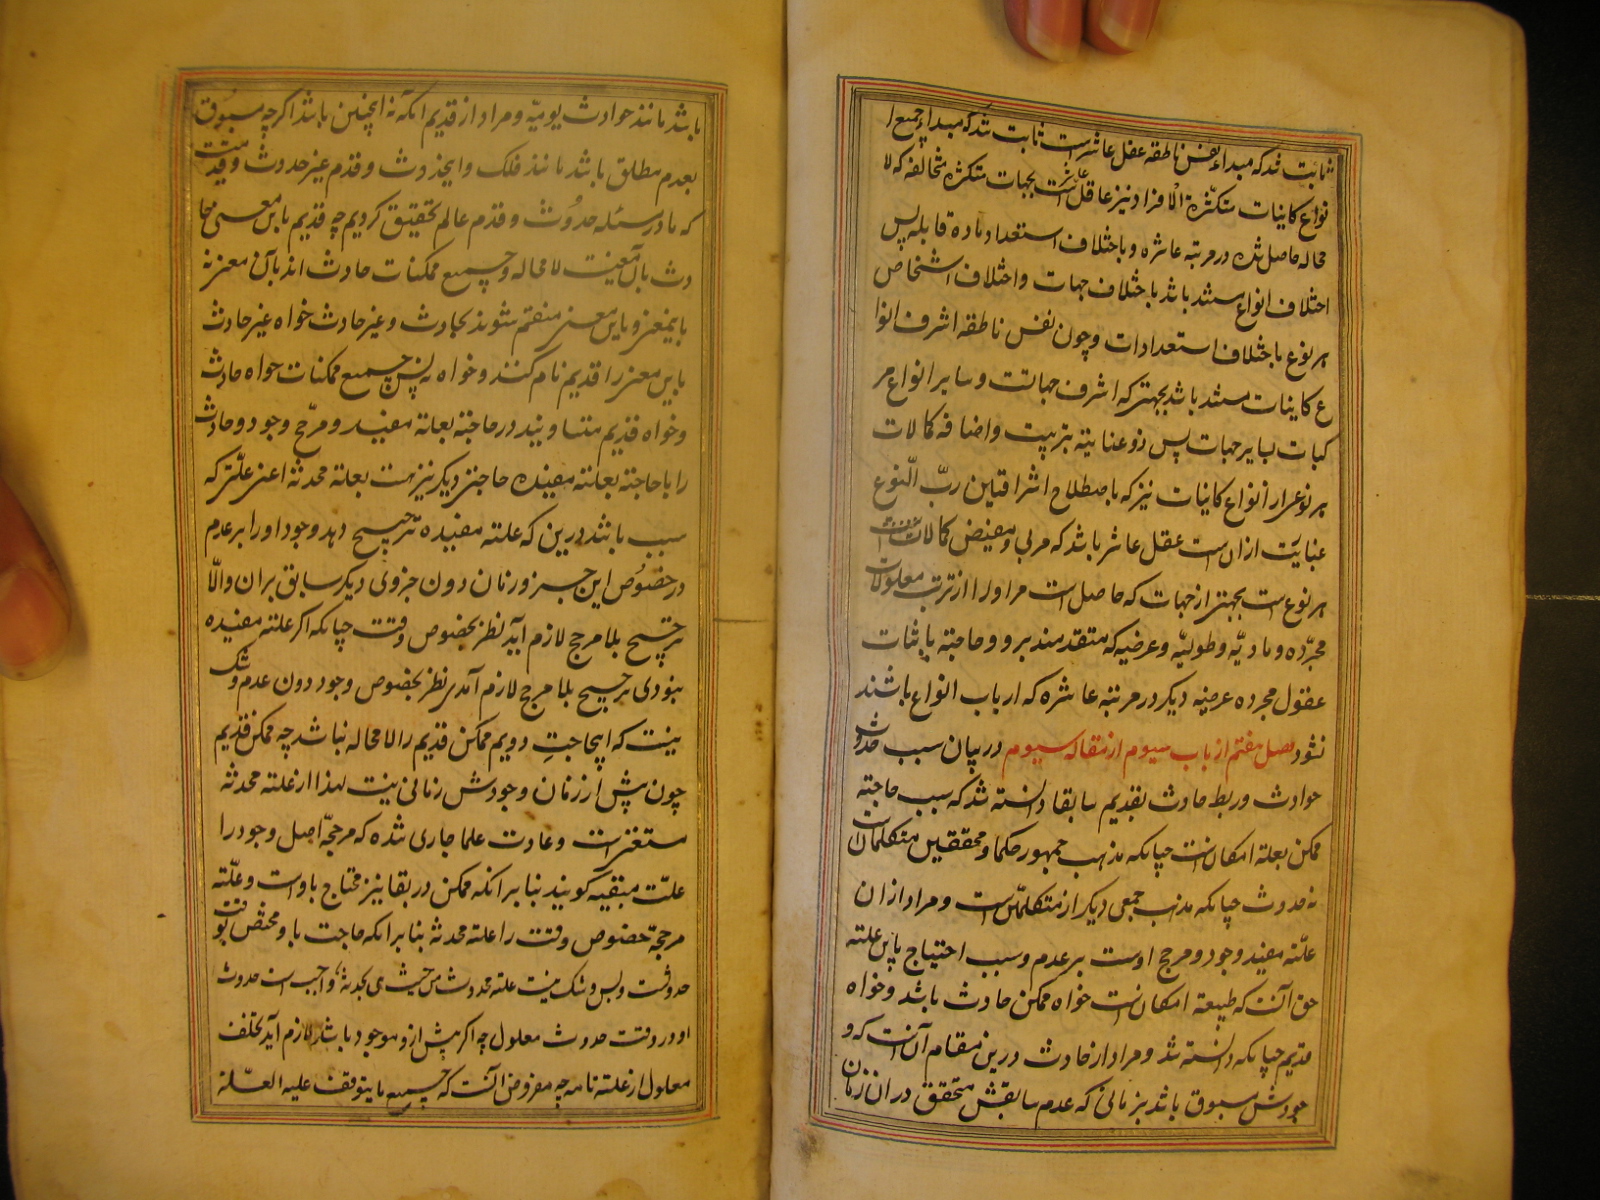 ثابت شد که مبداء نفس ناطقه عقل عاشر است ثابت شد که مبداء جمیع ا
نواع کاینات متکثرة الافراد نیز عاقل است بجهات متکثره متخالفه که لا
محاله حاصل شده در مرتبه عاشره و باختلاف استعداد ماده قابله پس
اختلاف انواع مستند باشد باختلاف جهات و اختلاف اشخاص
هر نوع باختلاف استعدادات و چون نفس ناطقه اشرف انوا
ع کاینات مستند باشد بجهتی که اشرف جهاتست و سایر انواع مر
کبات بسایر جهات پس ذو عنایته بتربیت و اضافه کمالات
هر نوعی از انواع کاینات نیز که باصطلاح اشراقیین ربّ النّوع
عبایت از ان است عقل عاشر باشد که مربی و مفیض کمالات
هر نوع است بجهتی از جهات که حاصل است مر او را از ترتب معلولات
مجرّده و مادیّه و طولیّه و عرضیه که متقدمند برو و حاجته باثبات
عقول مجرده عرضیه دیگر در مرتبه عاشره که ارباب انواع باشند
نشود فصل هفتم از باب سیوم از مقاله سیوم در بیان سبب حدوث
حوادث و ربط حادث بقدیم سابقا دانسته شد که سبب حاجته
ممکن بعلته امکان است چنانکه مذهب جمهور حکما و محققین متکلمان است
نه حدوث چنانکه مذهب جمعی دیکر از متکلمین است و مراد از ان
علّته مفید وجود و مرجح اوست بر عدم و سبب احتیاج باین علته
حق آنست که طبیعة امکان است خواه ممکن حادث باشد و خواه
قدیم چنانکه دانسته شد و مراد از حادث درین مقام آن است که و
جودش مسبوق باشد بزمانی که عدم سابقش متحقق در ان زمان
باشد مانند حوادث یومیّه و مراد از قدیم انکه نه اینچنین باشد اکر چه مسبوق
بعدم مطلق باشد مانند فلک و این حدوث و قدم غیر حدوث و قدمیست
که ما در مسئله حدوث و قدم عالم تحقیق کردیم چه قدیم باین معنی حا
دث بآن معنیست لا محاله و جمیع ممکنات حادث اند بآن معنی نه
باینمعنی و باین معنی منقسم شوند بحادث و غیر حادث خواه غیر حادث
باین معنی را قدیم نام کنند و خواه نه پس جمیع ممکنات خواه حادث
و خواه قدیم متساویند در حاجته بعلته مفید و مرجّح وجود و حادث
را با حاجته بعلته مفیده حاجتی دیکر نیز هست بعلته محدثه اعنی علّتی که
سبب باشد درین که علته مفیده ترجیح دهد وجود او را بر عدم
در خصوص این جزو زمان دون جزوی دیکر سابق بران والّا
ترجیح بلا مرجح لازم آید نظر بخصوص وقت چنانکه اکر علته مفیده
نبودی ترجیح بلا مرجح لازم آمدی نظر بخصوص وجود دون عدم و شک
نیست که اینحاجتِ دویم ممکن قدیم را لا محاله نباشد چه ممکن قدیم
چون پیش از زمان وجودش زمانی نیست لهذا از علته محدثه
مستغنی است و عادت علما جاری شده که مرجحّه اصل وجود را
علّت مبقیه کویند بنا بر انکه ممکن در بقا نیز محتاج باوست و علّته
مرجحّه خصوص وقت را علته محدثه بنا بر انکه حاجت باو مختص بوقت
حدوثست و بس و شک نیست علته محدوث من حیث هی محدثه واجب است حدوث
او در وقت حدوث معلول چه اکر پیش ازو موجود باشد لازم آید تخلف
معلول از علته تامه چه مفروض آنست که جمیع ما یتوقف علیه العلّة